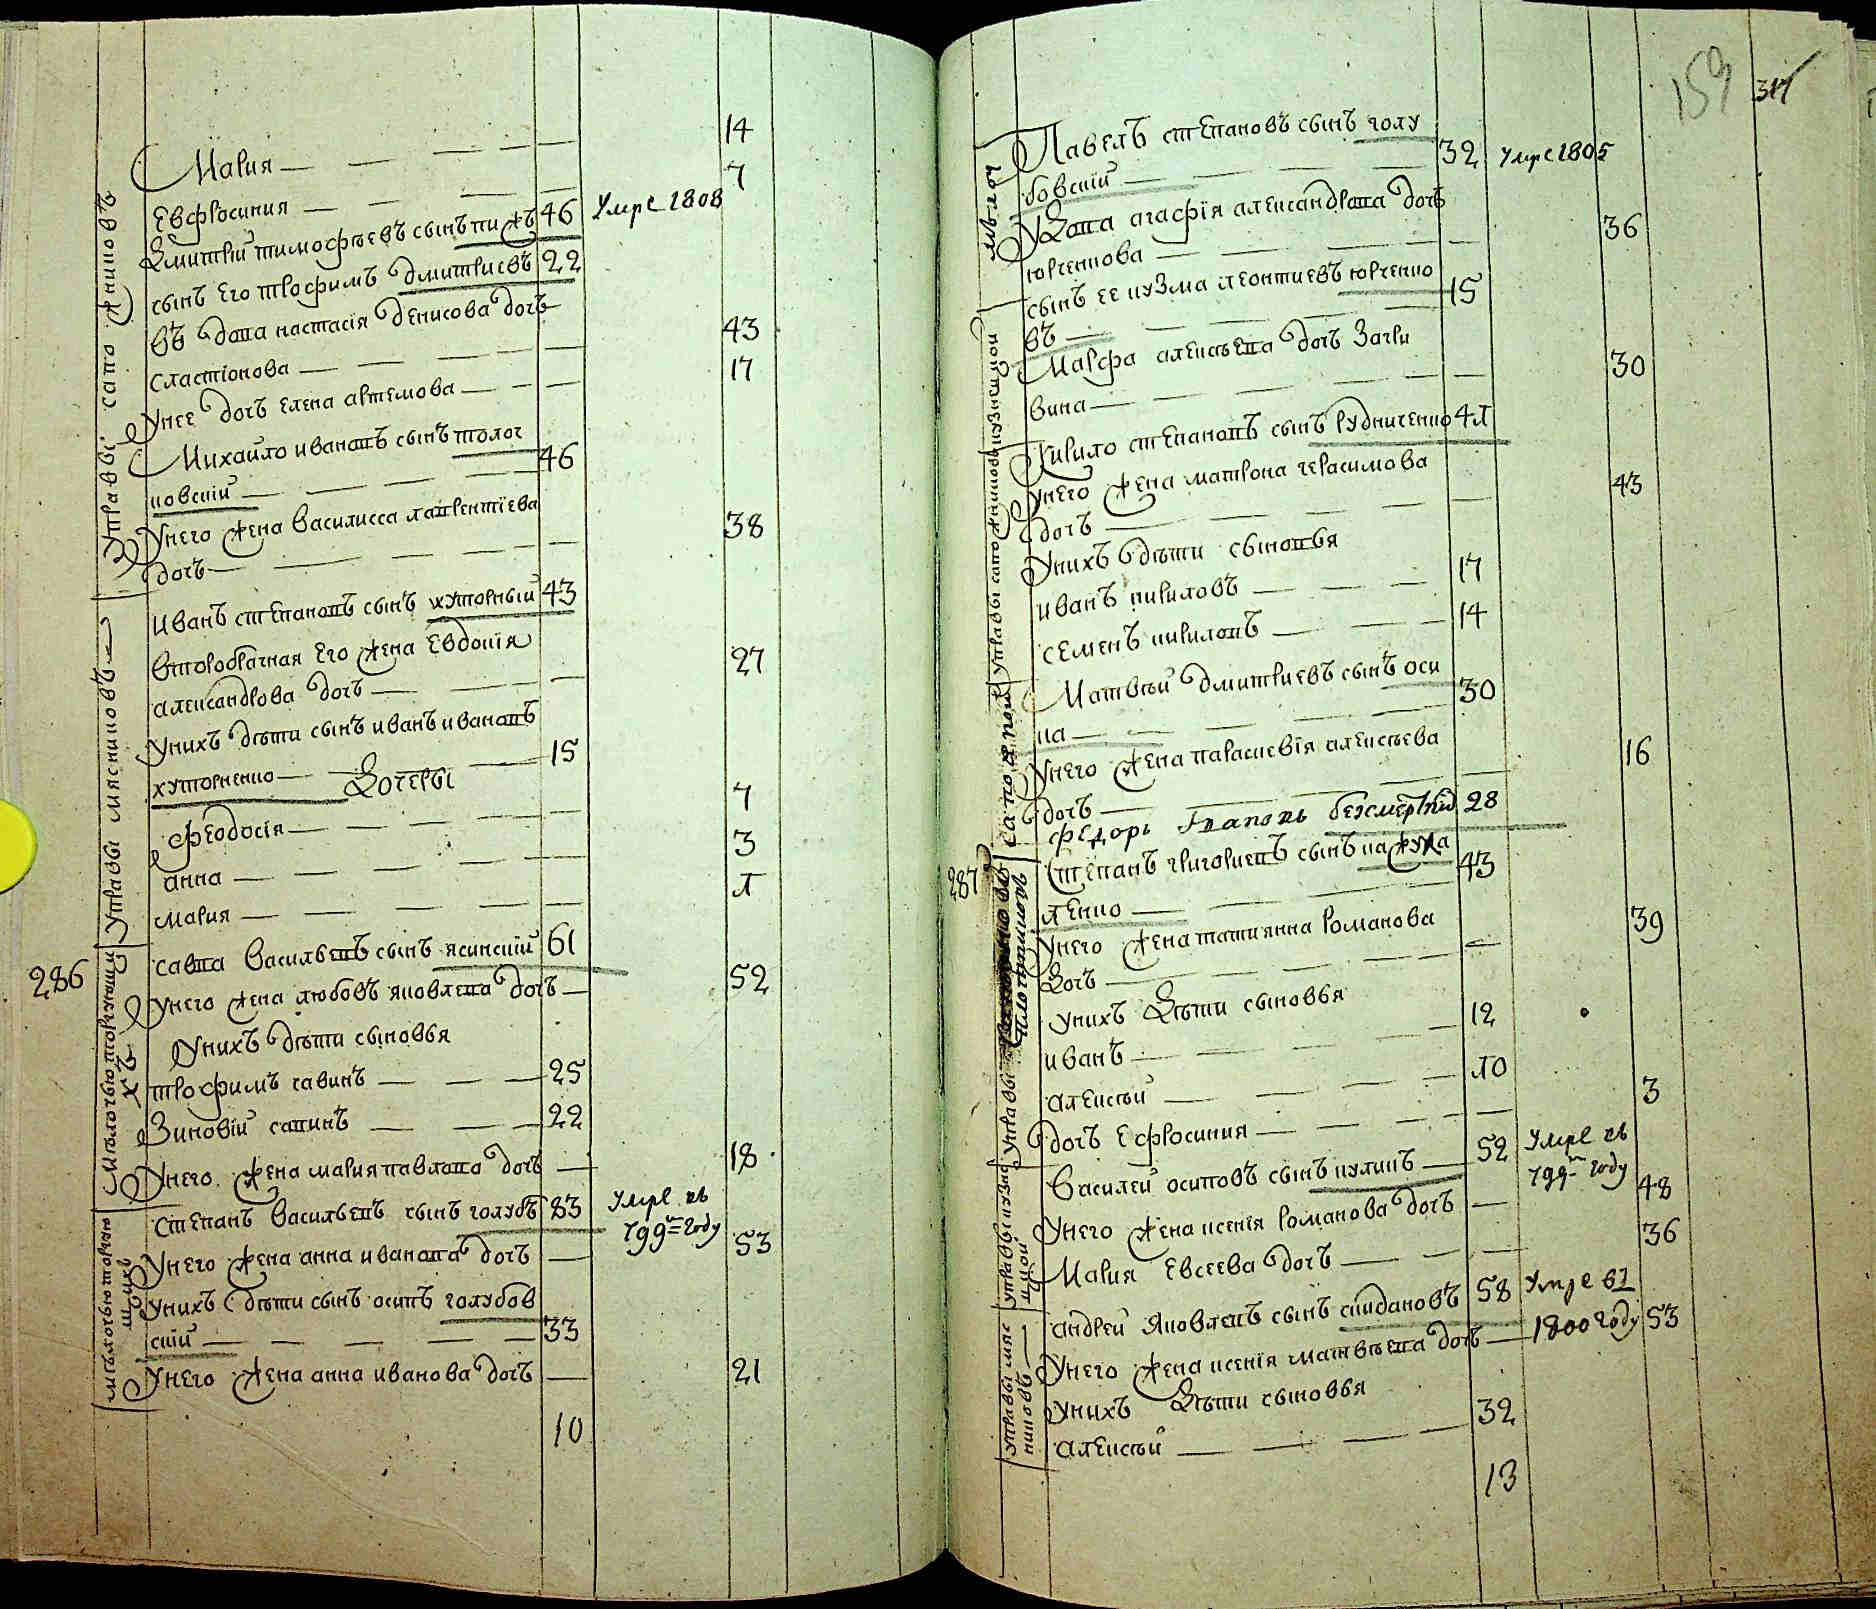 Мария — 14
Евфросиния — 7
Дмитрий тимофѣевъ сынъ 46 Умре 1808
сынъ его трофимъ дмитриевъ 22
въ дова настасія денисова дочь
сластіонова — 43
Унее дочь елена артемова — 17
Михайло ивановъ сынъ толоч
ковский — 46
Унего жена василисса лаврентіева
дочь — 38
Иванъ степановъ сынъ хуторный 43
второбрачная его жена евдокія
александрова дочь — 27
Унихъ дѣти сынъ иванъ ивановъ
хуторненко — 15
Дочеры
феодосія — 7
анна — 3
мария — 1
савва васильевъ сынъ ясинский 61
286
Унего жена любовъ яковлева дочь — 52
Унихъ дѣти сыновья
трофимъ савинъ — 25
Зиновий савинъ — 22
Унего жена мария павлова дочь — 18
Степанъ васильевъ сынъ голубъ 83 Умре въ
799м году
Унего жена анна иванова дочь — 53
Унихъ дѣти сынъ осипъ голубов
ский — 33
Унего жена анна иванова дочь — 21
10
Управы сапожниковъ
Управы мясниковъ
мѣлочью торгующи
хъ
мѣлочью торгую
щихъ
159 317
Павелъ степановъ сынъ голу
бовский — 32 Умре 1805
Вдова агафія александрова дочь
юрченкова — 36
сынъ ее кузма леонтиевъ юрченко
въ — 15
Марфа алексѣева дочь
вина — 30
Кирило степановъ сынъ рудниченко 41
Унего жена матрона герасимова
дочь — 43
Унихъ дѣти сыновья
иванъ кириловъ — 17
семенъ кириловъ — 14
Матвѣй дмитриевъ сынъ оси
ка — 30
Унего жена параскевія алексѣева
дочь — 16
федоръ Ивановъ безсмертный 28
Степанъ григориевъ сынъ кажука
ленко — 43
287
Унего жена татиянна романова
Дочь — 39
Унихъ Дѣти сыновья
иванъ — 12
алексѣй — 10
дочь ефросиния — 3
Василей осиповъ сынъ куликъ — 52 Умре въ
799м году
Унего жена ксенія романова дочь — 48
Мария евсеева дочь — 36
андрей яковлевъ сынъ скидановъ 58 Умре въ
1800 году
Унего жена ксенія матвѣева дочь — 53
Унихъ Дѣти сыновья
алексѣй — 32
13
мѣлоч
управы сапожниковъ кузнецкой
управы плотниковъ
управы кузне
цкой
управы мяс
никовъ